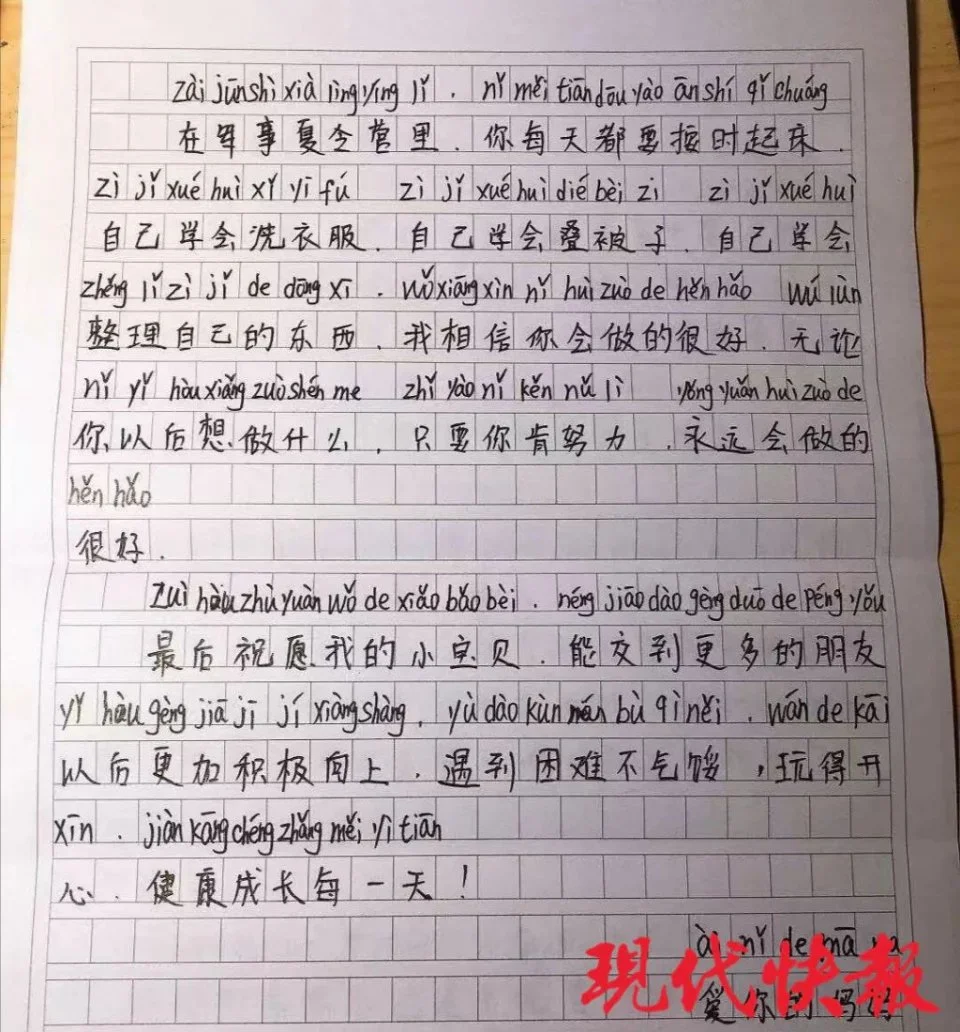 zài jūnshì xià lìngyíng lǐ . nǐ měi tiān dōu yào ānshí qǐ chuáng
在军事夏令营里.你每天都要按时起床.
zì jǐ xué huì xǐ yī fú zì jǐ xué huì dié bèi zi zì jǐ xué huì
自己学会洗衣服.自己学会叠被子.自己学会
zhěng lǐ zì jǐ de dōng xī . wǒ xiāng xìn nǐ huì zuò de hěn hǎo wú lùn
整理自己的东西.我相信你会做的很好.无论
nǐ yǐ hòu xiǎng zuò shén me zhǐ yào nǐ kěn nǔ lì yǒng yuǎn huì zuò de
你以后想做什么.只要你肯努力.永远会做的
hěn hǎo
很好.
zuì hòu zhù yuàn wǒ de xiǎo bǎo bèi . néng jiāo dào gèng duō de péng yǒu
最后祝愿我的小宝贝.能交到更多的朋友
yǐ hòu gèng jiā jī jí xiàng shàng . yù dào kùn nán bù qì něi . wán de kāi
以后更加积极向上.遇到困难不气馁,玩得开
xīn . jiàn kāng chéng zhǎng měi yì tiān
心.健康成长每一天!
ài nǐ de mā ma
爱你的妈妈
现代快报